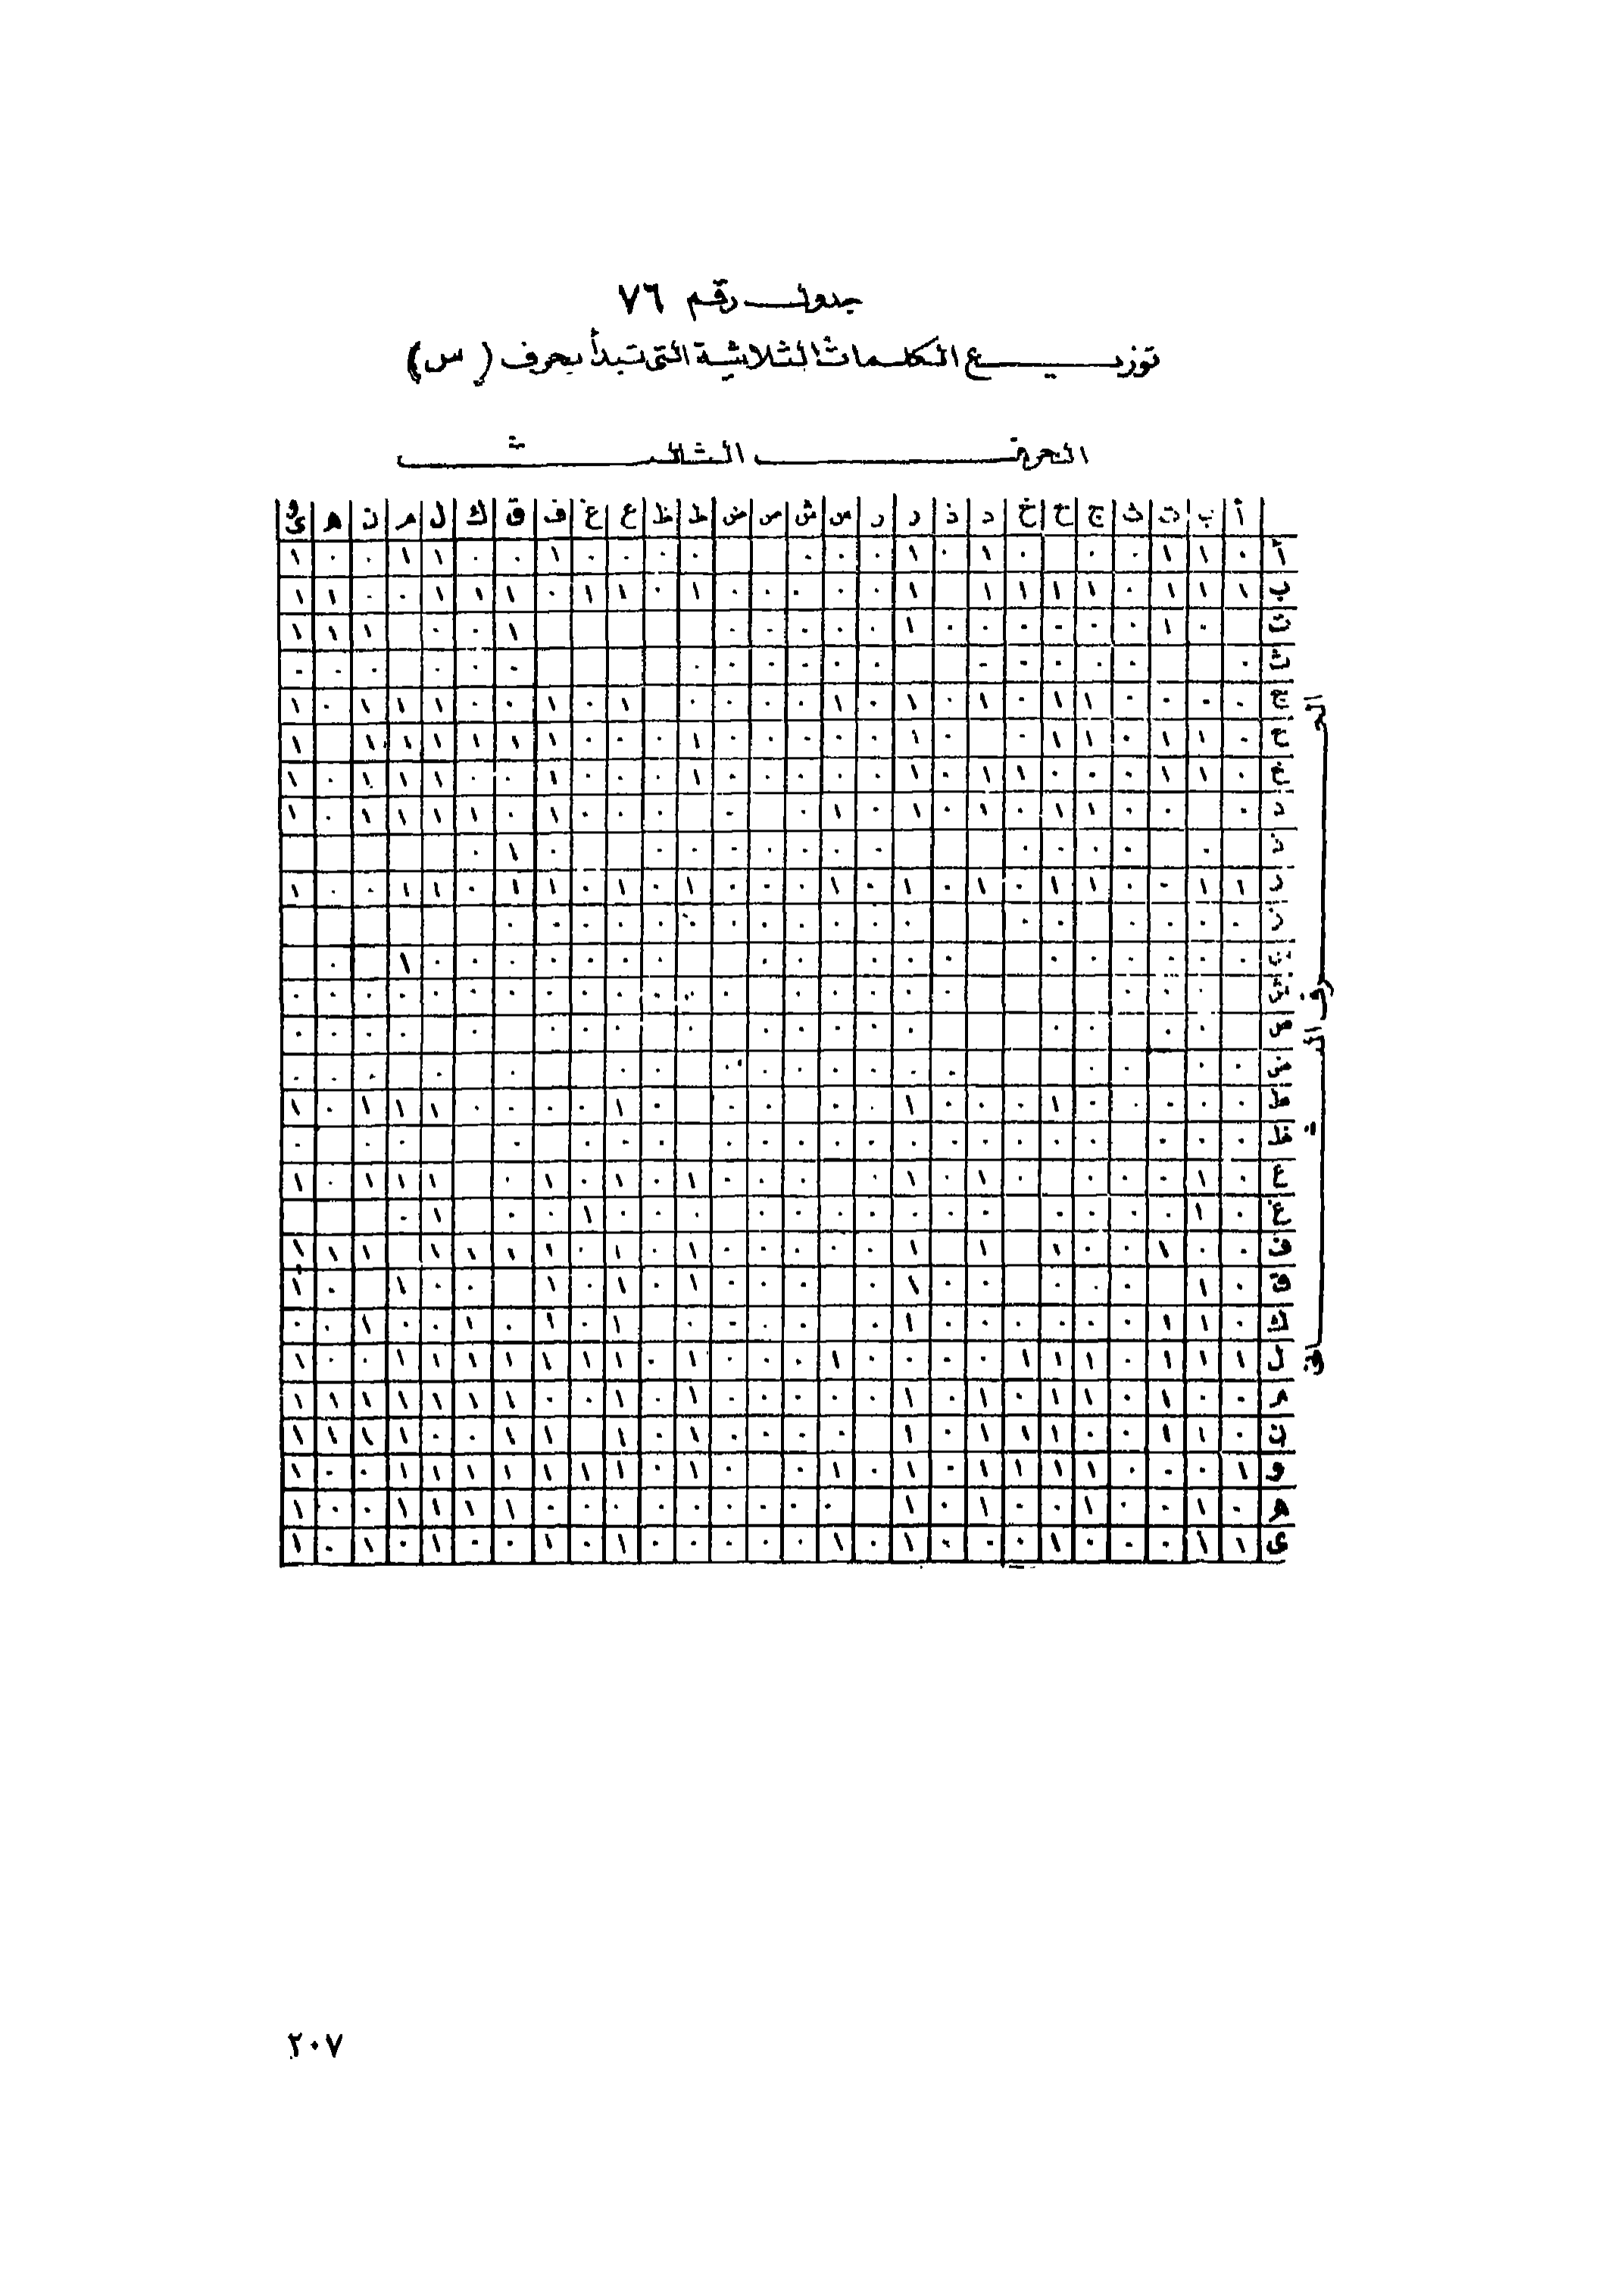 جدول رقم ٧٦
توزيع الكلمات الثلاثية التى تبدأ بحرف (س)
الحرف الثالث
أ ب ت ث ج ح خ د ذ ر ز س ش ص ض ط ظ ع غ ف ق ك ل م ن ه وى
أ ٠ ١ ١ ٠ ٠ ٠ ١ ٠ ١ ٠ ٠ ٠ ٠ ٠ ٠ ٠ ١ ٠ ٠ ١ ١ ٠ ٠ ١
ب ١ ١ ١ ٠ ١ ١ ١ ١ ١ ٠ ٠ ٠ ٠ ٠ ١ ٠ ١ ١ ٠ ١ ١ ١ ٠ ٠ ١ ١
ت ٠ ١ ٠ ٠ ٠ ٠ ٠ ٠ ١ ٠ ٠ ٠ ٠ ٠ ١ ٠ ٠ ١ ١ ١
ث ٠ ٠ ٠ ٠ ٠ ٠ ٠ ٠ ٠ ٠ ٠ ٠ ٠ ٠ ٠ ٠ ٠ ٠ ٠
ج ٠ ٠ ٠ ٠ ١ ١ ٠ ١ ٠ ١ ٠ ١ ٠ ٠ ٠ ٠ ١ ٠ ١ ٠ ٠ ١ ١ ١ ٠ ١
ح ٠ ١ ١ ٠ ١ ١ ٠ ٠ ١ ٠ ٠ ٠ ٠ ٠ ١ ٠ ٠ ٠ ١ ١ ١ ١ ١ ١ ١
خ ٠ ١ ١ ٠ ٠ ٠ ١ ١ ٠ ١ ٠ ٠ ٠ ٠ ٠ ١ ٠ ٠ ٠ ١ ٠ ٠ ١ ١ ١ ٠ ١
د ٠ ٠ ٠ ١ ١ ٠ ١ ٠ ١ ٠ ١ ٠ ٠ ٠ ٠ ٠ ١ ٠ ١ ١ ١ ١ ٠ ١
ذ ٠ ٠ ٠ ٠ ٠ ٠ ٠ ٠ ٠ ٠ ٠ ٠ ٠ ١ ٠
ر ١ ١ ٠ ٠ ١ ١ ٠ ١ ٠ ١ ٠ ١ ٠ ٠ ٠ ١ ٠ ١ ٠ ١ ١ ٠ ١ ١ ٠ ٠ ١
ز ٠ ٠ ٠ ٠ ٠ ٠ ٠ ٠ ٠ ٠ ٠ ٠ ٠ ٠ ٠ ٠ ٠ ٠ ٠
س ٠ ٠ ٠ ٠ ٠ ٠ ٠ ٠ ٠ ٠ ٠ ٠ ٠ ٠ ٠ ٠ ٠ ٠ ٠ ١ ٠
ش ٠ ٠ ٠ ٠ ٠ ٠ ٠ ٠ ٠ ٠ ٠ ٠ ٠ ٠ ٠ ٠ ٠ ٠ ٠ ٠ ٠
ص ٠ ٠ ٠ ٠ ٠ ٠ ٠ ٠ ٠ ٠ ٠ ٠ ٠ ٠ ٠ ٠ ٠ ٠
ض ٠ ٠ ٠ ٠ ٠ ٠ ٠ ٠ ٠ ٠ ٠ ٠ ٠ ٠ ٠ ٠ ٠ ٠
ط ٠ ٠ ٠ ٠ ٠ ١ ٠ ٠ ٠ ١ ٠ ٠ ٠ ٠ ٠ ١ ٠ ٠ ٠ ٠ ١ ١ ١ ٠ ١
ظ ٠ ٠ ٠ ٠ ٠ ٠ ٠ ٠ ٠ ٠ ٠ ٠ ٠ ٠ ٠ ٠ ٠ ٠ ٠ ٠ ٠ ٠ ٠
ع ٠ ١ ٠ ٠ ٠ ٠ ١ ٠ ١ ٠ ٠ ٠ ٠ ١ ٠ ١ ٠ ١ ٠ ١ ١ ١ ٠ ١
غ ٠ ١ ٠ ٠ ٠ ٠ ٠ ٠ ٠ ٠ ٠ ٠ ٠ ٠ ٠ ٠ ١ ٠ ٠ ١ ٠
ف ٠ ٠ ١ ٠ ٠ ١ ١ ١ ٠ ٠ ٠ ٠ ٠ ١ ٠ ١ ٠ ١ ١ ١ ١ ١ ١ ١
ق ٠ ١ ٠ ٠ ٠ ٠ ٠ ١ ٠ ٠ ٠ ٠ ١ ٠ ١ ٠ ١ ٠ ٠ ١ ٠ ١
ك ٠ ١ ١ ٠ ٠ ٠ ٠ ٠ ٠ ١ ٠ ٠ ٠ ٠ ٠ ١ ٠ ١ ٠ ١ ٠ ٠ ١ ٠ ٠
ل ١ ١ ١ ٠ ١ ١ ١ ٠ ٠ ٠ ٠ ١ ٠ ٠ ٠ ١ ٠ ١ ١ ١ ١ ١ ١ ١ ٠ ٠ ١
م ٠ ٠ ١ ٠ ١ ١ ٠ ١ ٠ ١ ٠ ٠ ٠ ٠ ٠ ١ ٠ ١ ٠ ٠ ١ ١ ١ ١ ١ ١ ١
ن ٠ ١ ١ ٠ ٠ ١ ١ ١ ٠ ١ ٠ ٠ ٠ ٠ ١ ٠ ١ ١ ١ ٠ ٠ ١ ١ ١ ١
و ١ ٠ ٠ ٠ ١ ١ ١ ١ ٠ ١ ٠ ١ ٠ ٠ ١ ٠ ١ ١ ١ ١ ١ ١ ١ ٠ ٠ ١
ه ٠ ١ ٠ ٠ ١ ٠ ٠ ١ ٠ ١ ٠ ٠ ٠ ٠ ٠ ٠ ٠ ٠ ٠ ١ ١ ١ ١ ٠ ٠ ١
ى ١ ١ ٠ ٠ ٠ ١ ٠ ٠ ٠ ١ ٠ ١ ٠ ٠ ٠ ٠ ٠ ١ ٠ ١ ٠ ٠ ١ ٠ ١ ٠ ١
الحرف الثانى
٢٠٧